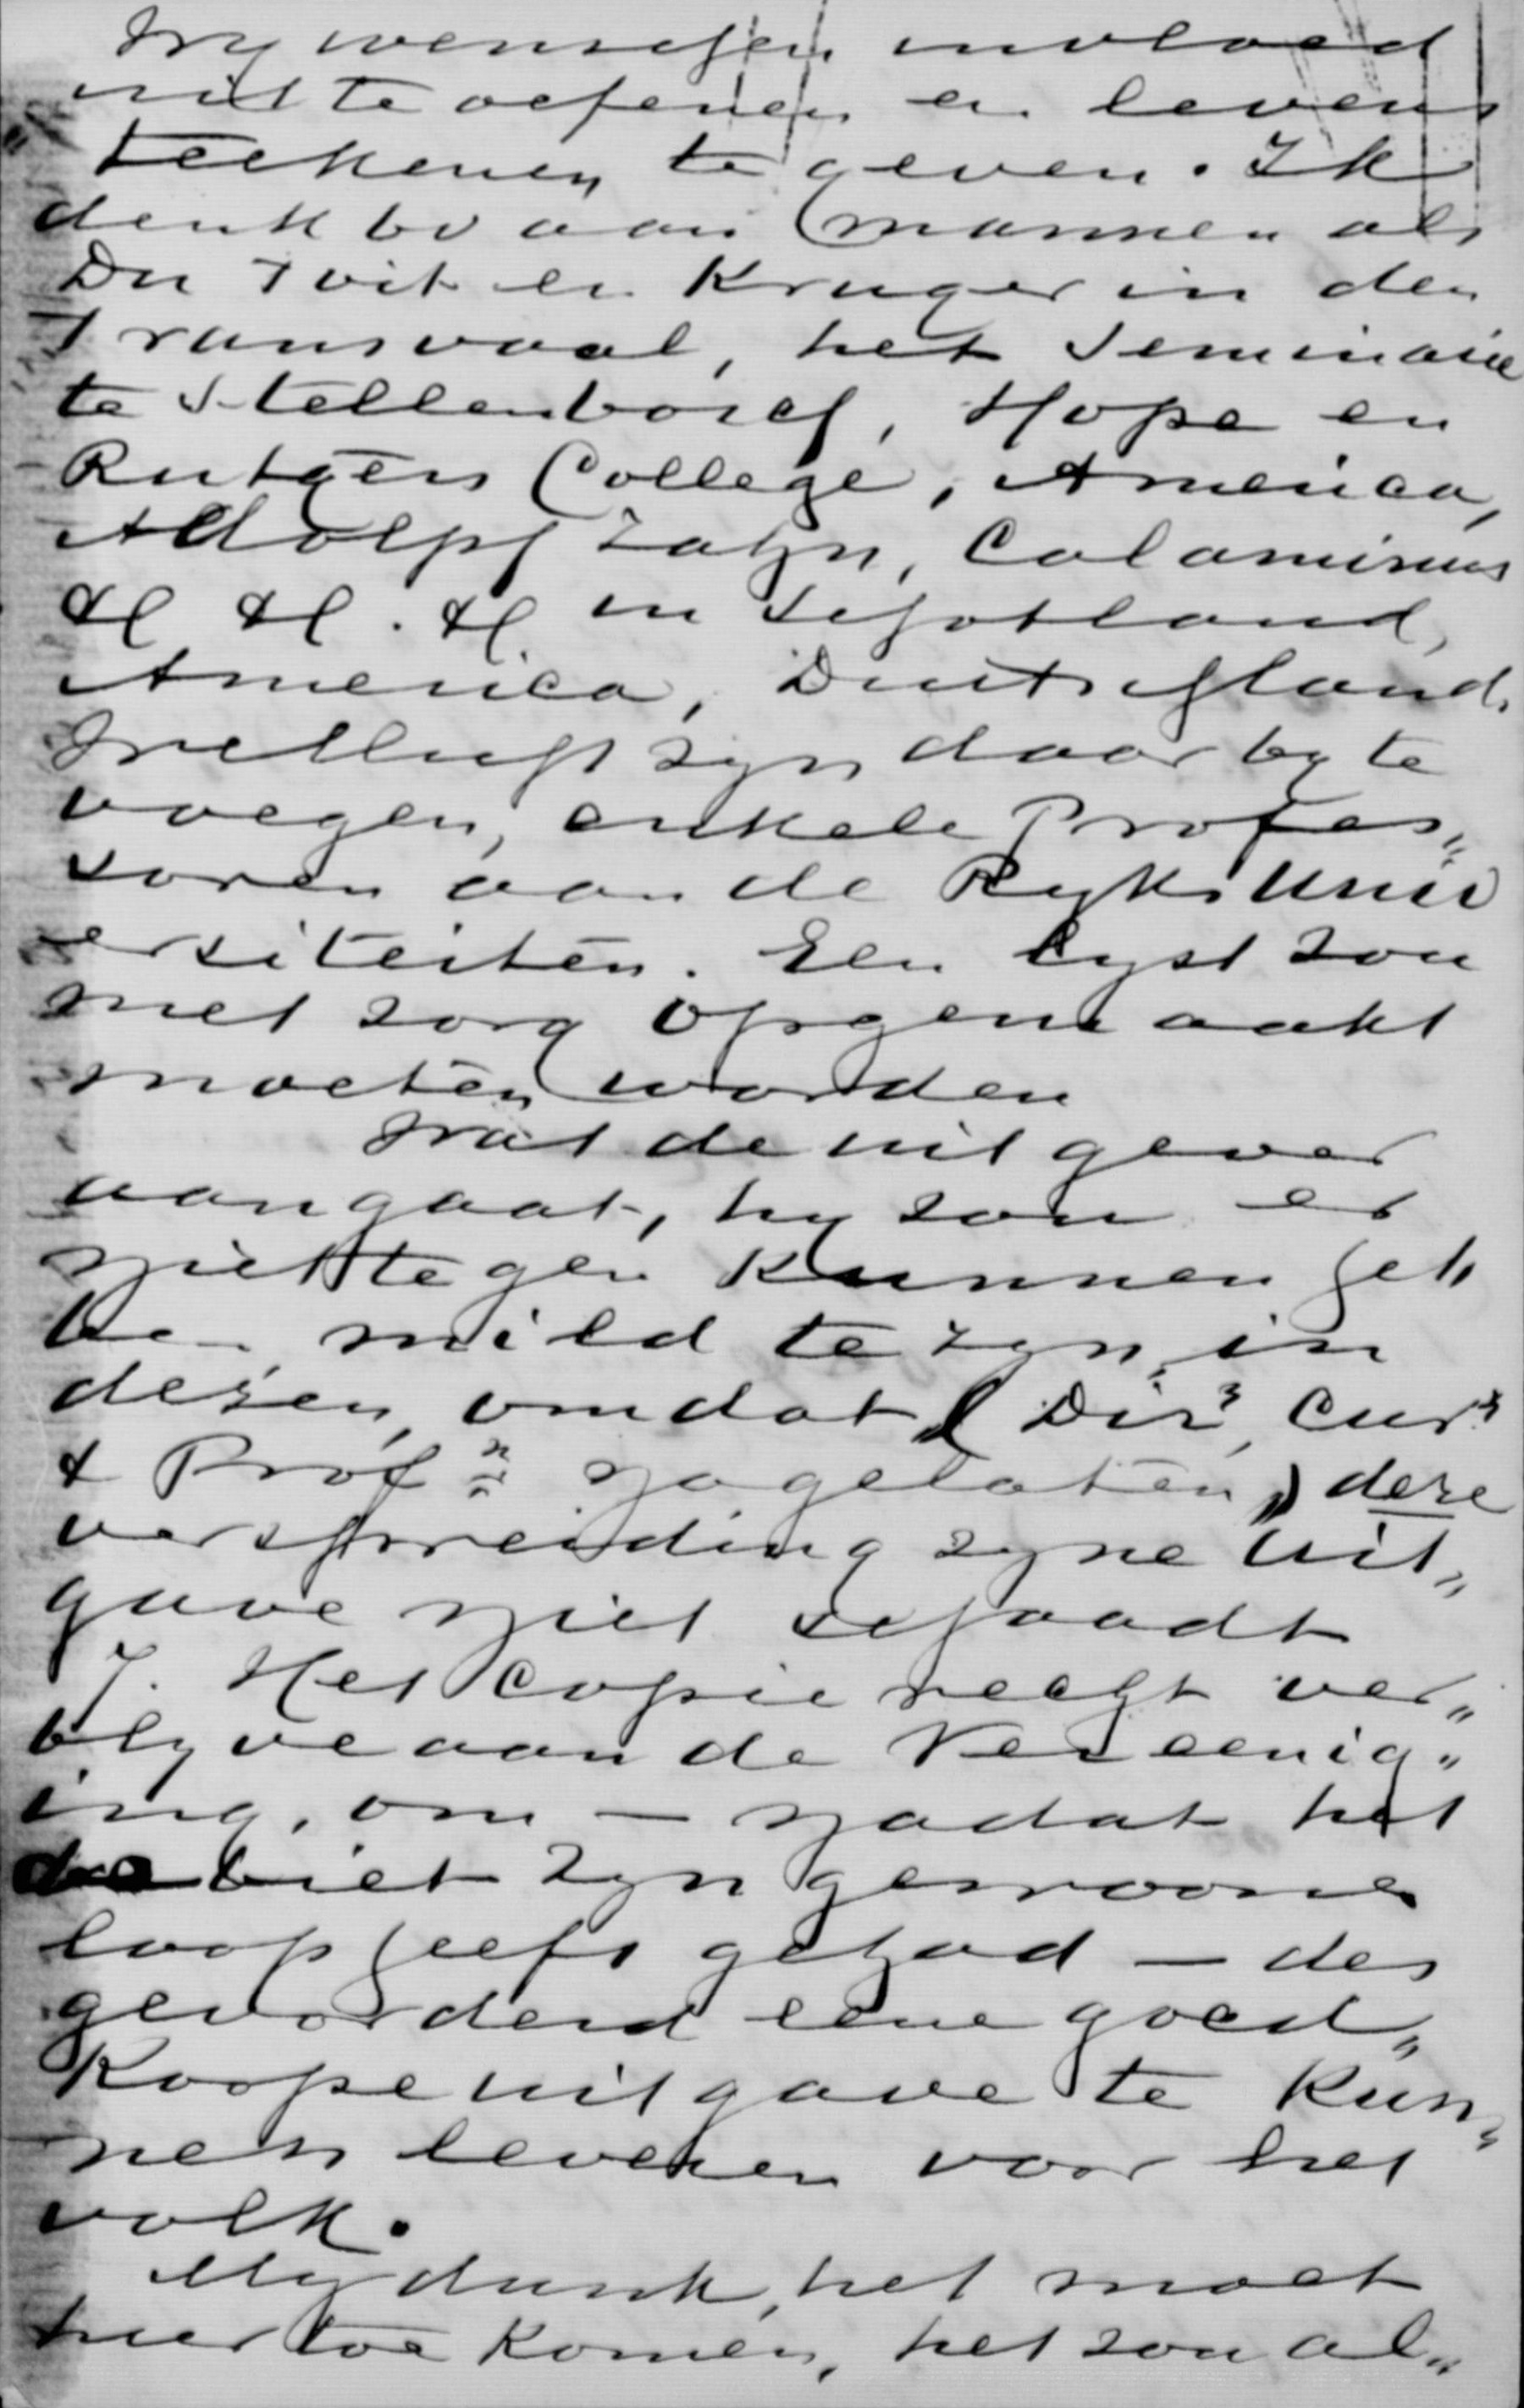 Wy wenschen invloed
uit te oefenen en levens
teekenen te geven. Ik
denk bv aan mannen als
Du Toit en Kruger in den
Transvaal, het Seminarie
te Stellenbosch, Hope en
Rutgers College, America,
Adolph Zahn, Calaminus
&c &c. &c in Schotland,
America, Duitschland.
Wellicht zyn daar by te
voegen, enkele Profes„
soren aan de Ryks Univ
ersiteiten. Een lyst zou
met zorg opgemaakt
moeten worden
Wat de uitgever
aangaat, hy zou er
niet tegen kunnen heb
ben mild te zyn, in
dezen, omdat (Dirn, Curn
& Profn nagelaten) deze
verspreiding zyne uit„
gave niet schaadt
7. Het Copierecht ver„
blyve aan de Vereenig„
ing, om — nadat het
debiet zyn gewoone
loop heeft gehad — des
gevorderd eene goed„
koope uitgave te kun„
nen leveren voor het
volk.
My dunk, het moet
hiertoe komen, het zou al„